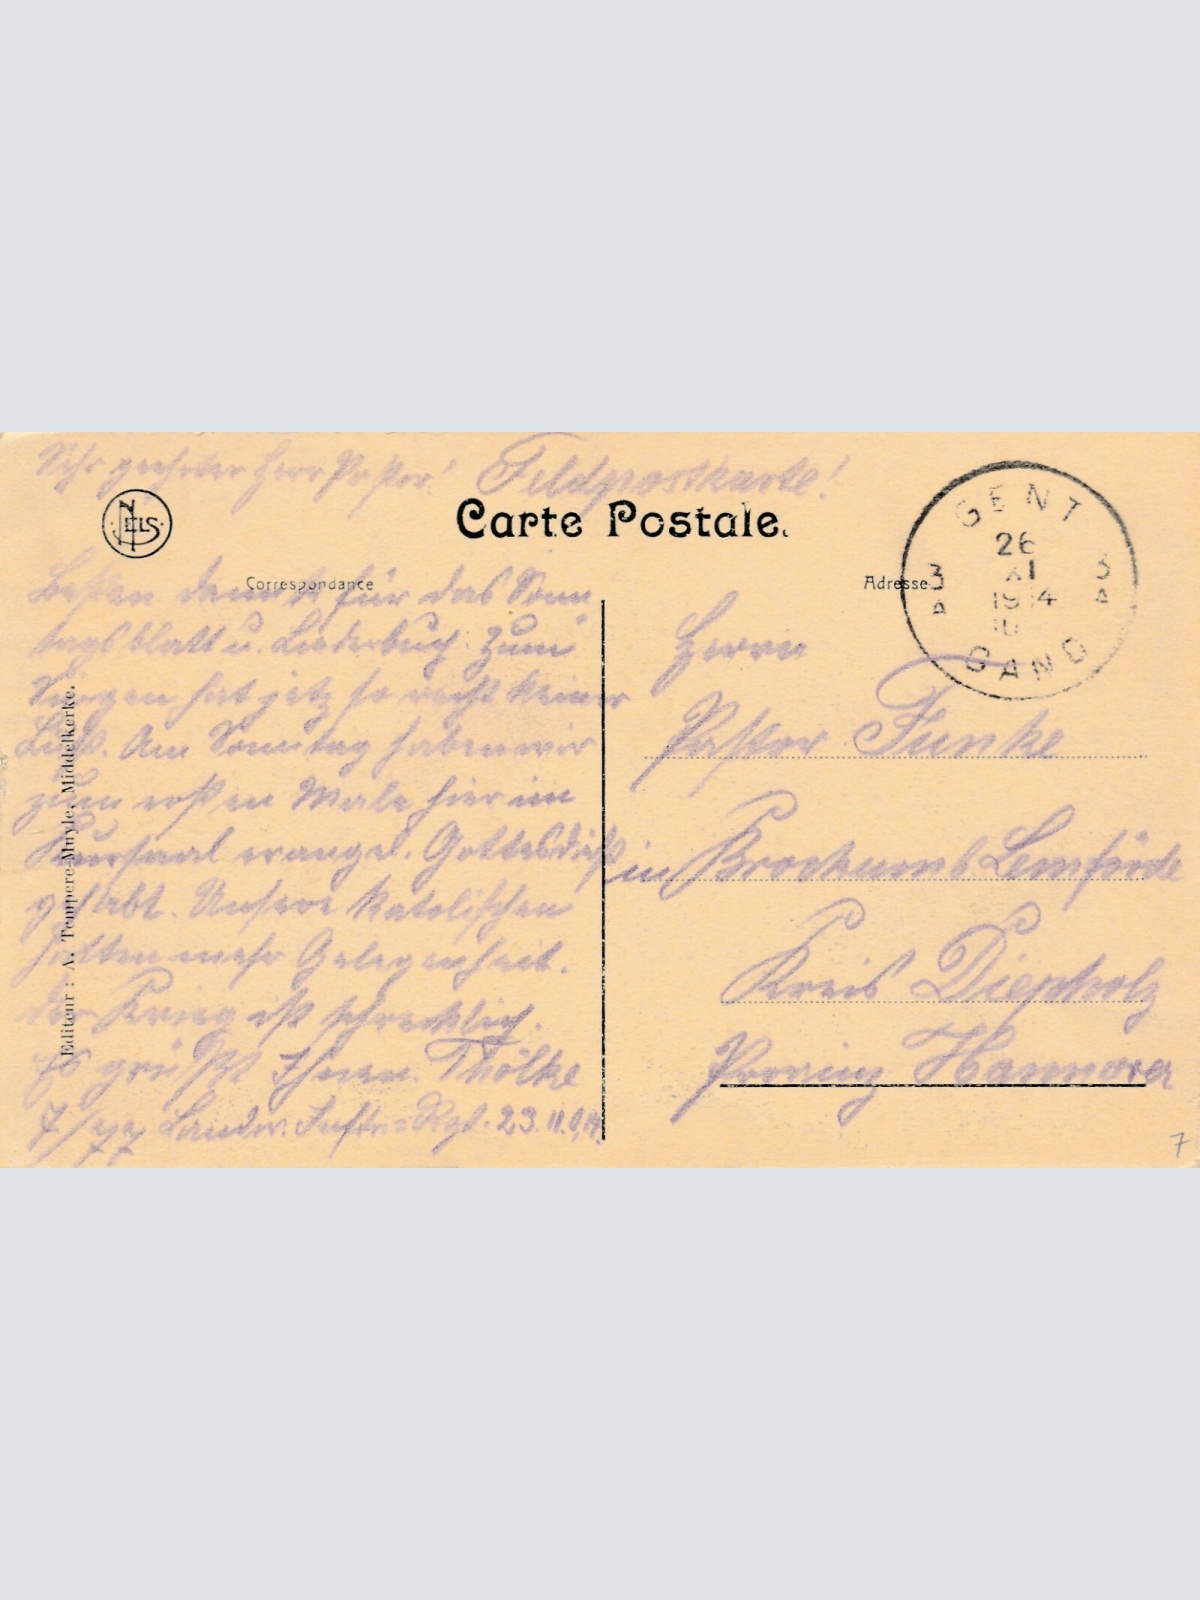 Sehr geehrter Herr Pastor!
Feldpostkarte!
NELS
Carte Postale.
Correspondance
Adresse
GENT
26
XI
1914
10
3 A
3 A
GAND
Besten Dank für das Sonn
tagsblatt u. Liederbuch. Zum
Singen hat jetz so recht keiner
Lust. Am Sonntag haben wir
zum ersten Male hier im
Kursaal evangel. Gottesdienst
gehabt. Unsere Katolischen
hatten mehr Gelegenheit.
Der Krieg ist schrecklich.
Es grüßt Ihnen. Thölke
Landw. Inftr.=Rgt. 23.11.14.
Herrn
Pastor Funke
in Brockum b. Lemförde
Kreis Diepholz
Provinz Hannover
Editeur : A. Tempere-Muyle, Middelkerke.
7